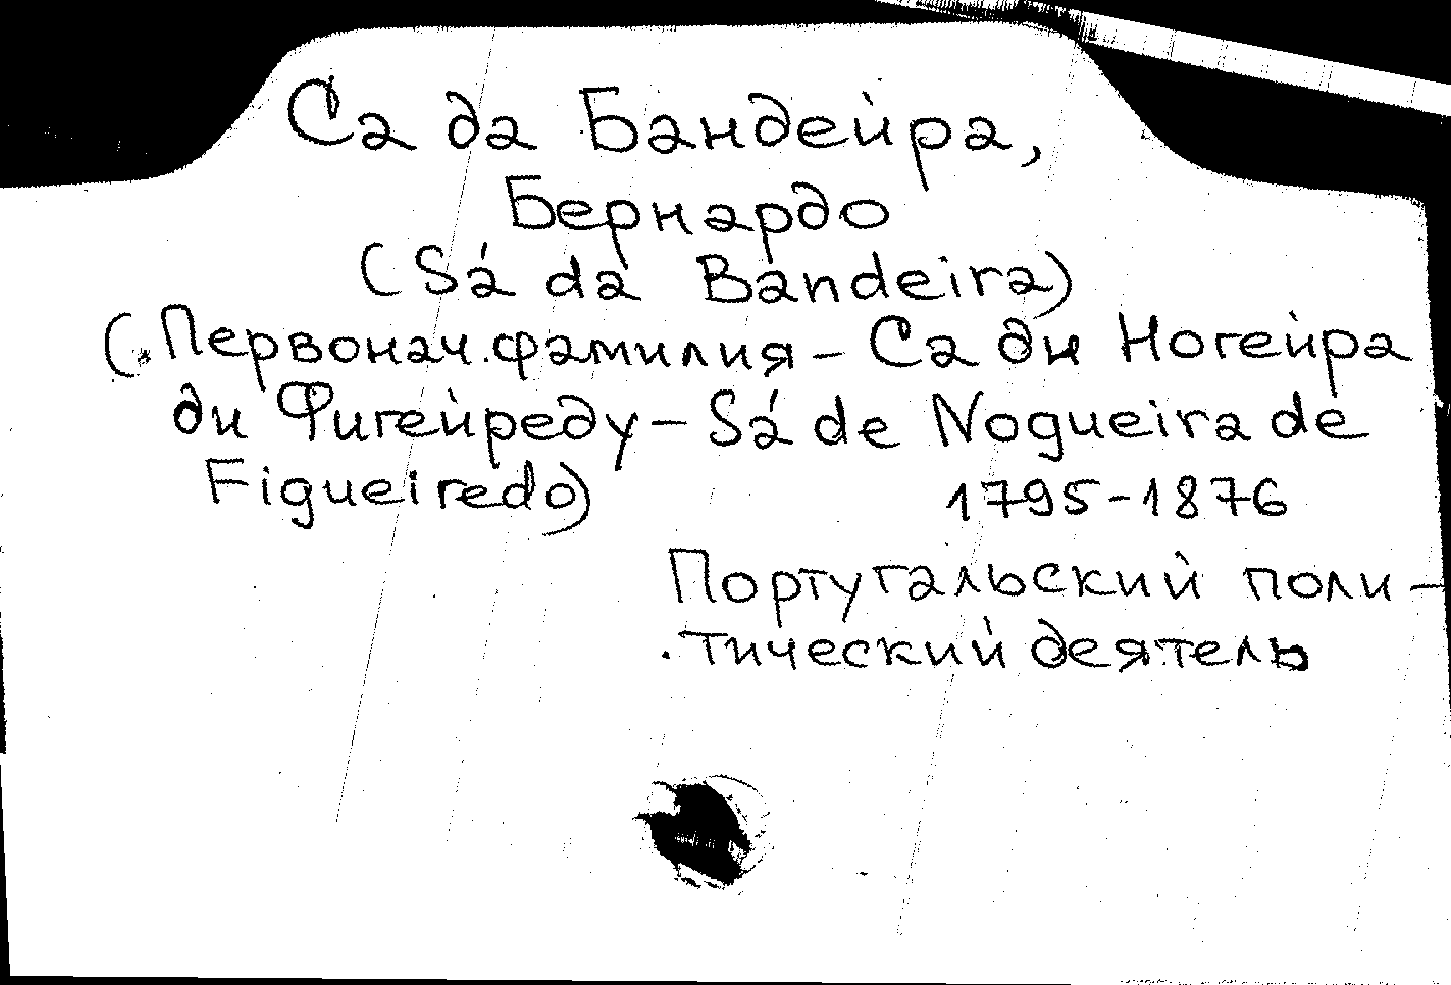 Са да Бандейра,
Бернардо
(Sá da Bandeira)
(Первонач. фамилия – Са ди Ногейра
ди Фигейреду – Sá de Nogueira de
Figueiredo) 1795-1876
Португальский поли-
тический деятель